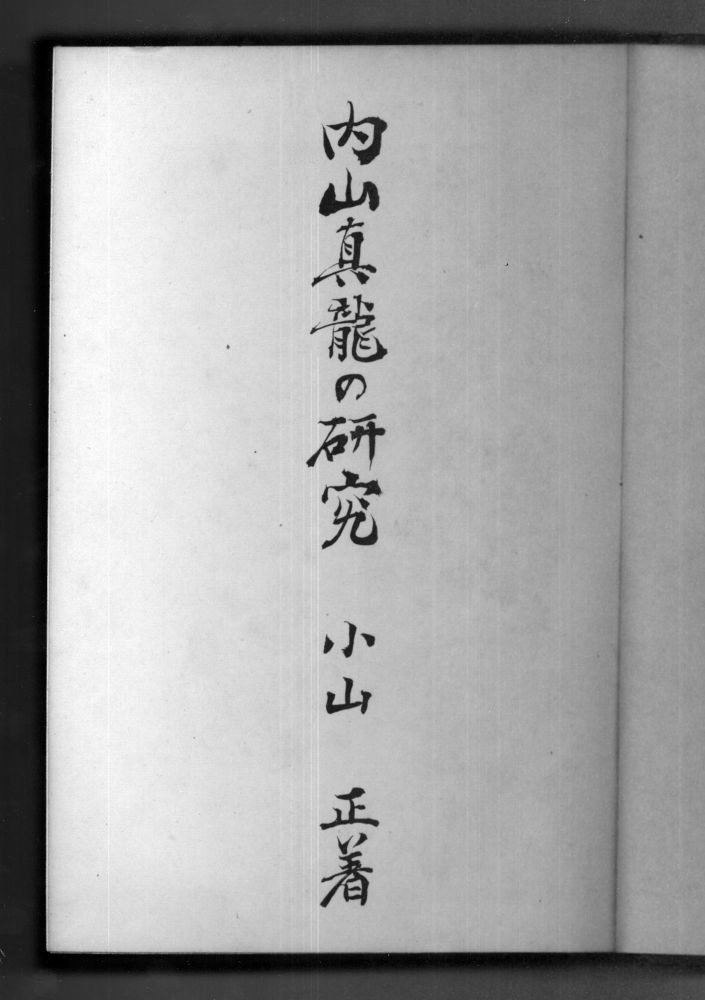 内山真龍の研究 小山 正着